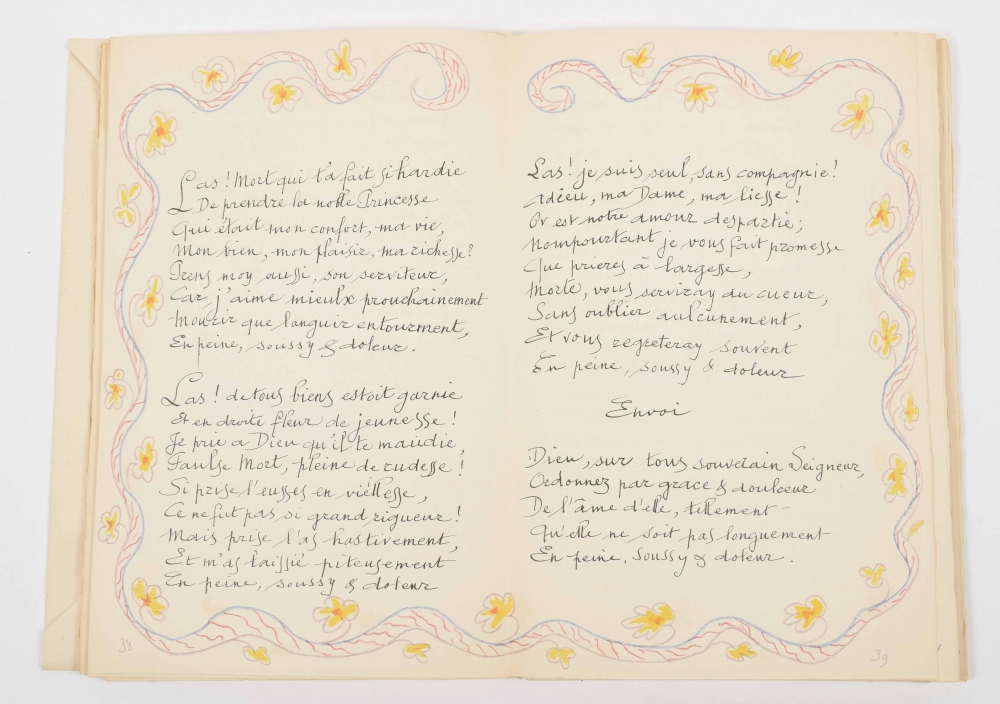 Las ! Mort qui t'a fait si hardie
De prendre la noble Princesse
Qui était mon confort, ma vie,
Mon bien, mon plaisir, ma richesse ?
Prens moy aussi, son serviteur,
Car j'aime mieulx prouchainement
Mourir que languir en tourment,
En peine, soussy & doleur.
Las ! de tous biens estoit garnie
Et en droite fleur de jeunesse !
Je prie a Dieu qu'il te maudie,
Faulse Mort, pleine de rudesse !
Si prise l'eusses en viellesse,
Ce ne fut pas si grand rigueur !
Mais prise l'as hastivement,
Et m'as laissié piteusement
En peine, soussy & doleur
38
Las ! je suis seul, sans compagnie !
Adieu, ma Dame, ma liesse !
Or est notre amour despartie ;
Nompourtant je vous fait promesse
Que prieres à largesse,
Morte, vous serviray du cueur,
Sans oublier aulcunement,
Et vous regreteray souvent
En peine, soussy & doleur
Envoi
Dieu, sur tous souverain Seigneur,
Ordonnez par grace & doulceur
De l'âme d'elle, tellement -
Qu'elle ne soit pas longuement
En peine, Soussy & doleur.
39